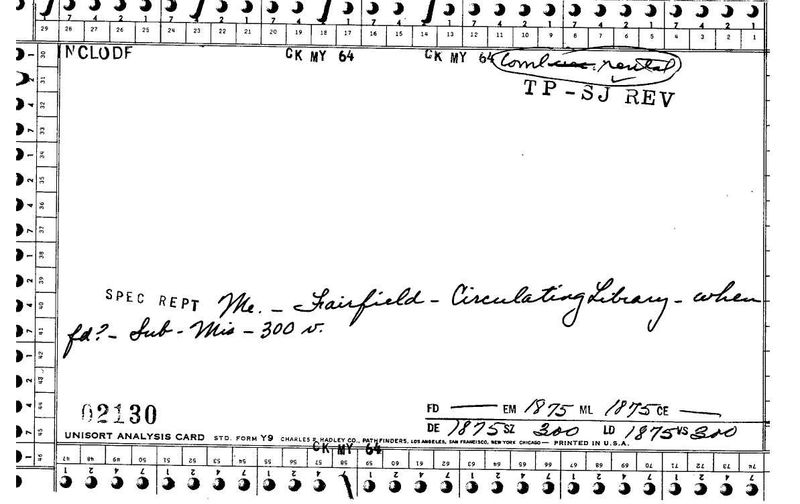 7 4 2 1 7 4 2 1 7 4 2 1 7 4 2 1
29 28 27 26 25 24 23 22 21 20 19 18 17 16 15 14 13 12 11 10 9 8 7 6 5 4 3 2 1
INCLODF CK MY 64 CK MY 64 rental
TP-SJ REV
30
31
32
33
34
35
36
37
38
39
40
41
42
43
44
45
46
SPEC REPT Me. - Fairfield - Circulating Library - when
fd? - Sub - Mis - 300 v.
FD — EM 1875 ML 1875 CE —
02130
DE 1875 SZ 300 LD 1875 VS 300
UNISORT ANALYSIS CARD STD. FORM Y9 CHARLES R. HADLEY CO., PATHFINDERS, LOS ANGELES, SAN FRANCISCO, NEW YORK CHICAGO — PRINTED IN U.S.A.
CK MY 64
47 48 49 50 51 52 53 54 55 56 57 58 59 60 61 62 63 64 65 66 67 68 69 70 71 72 73 74 75